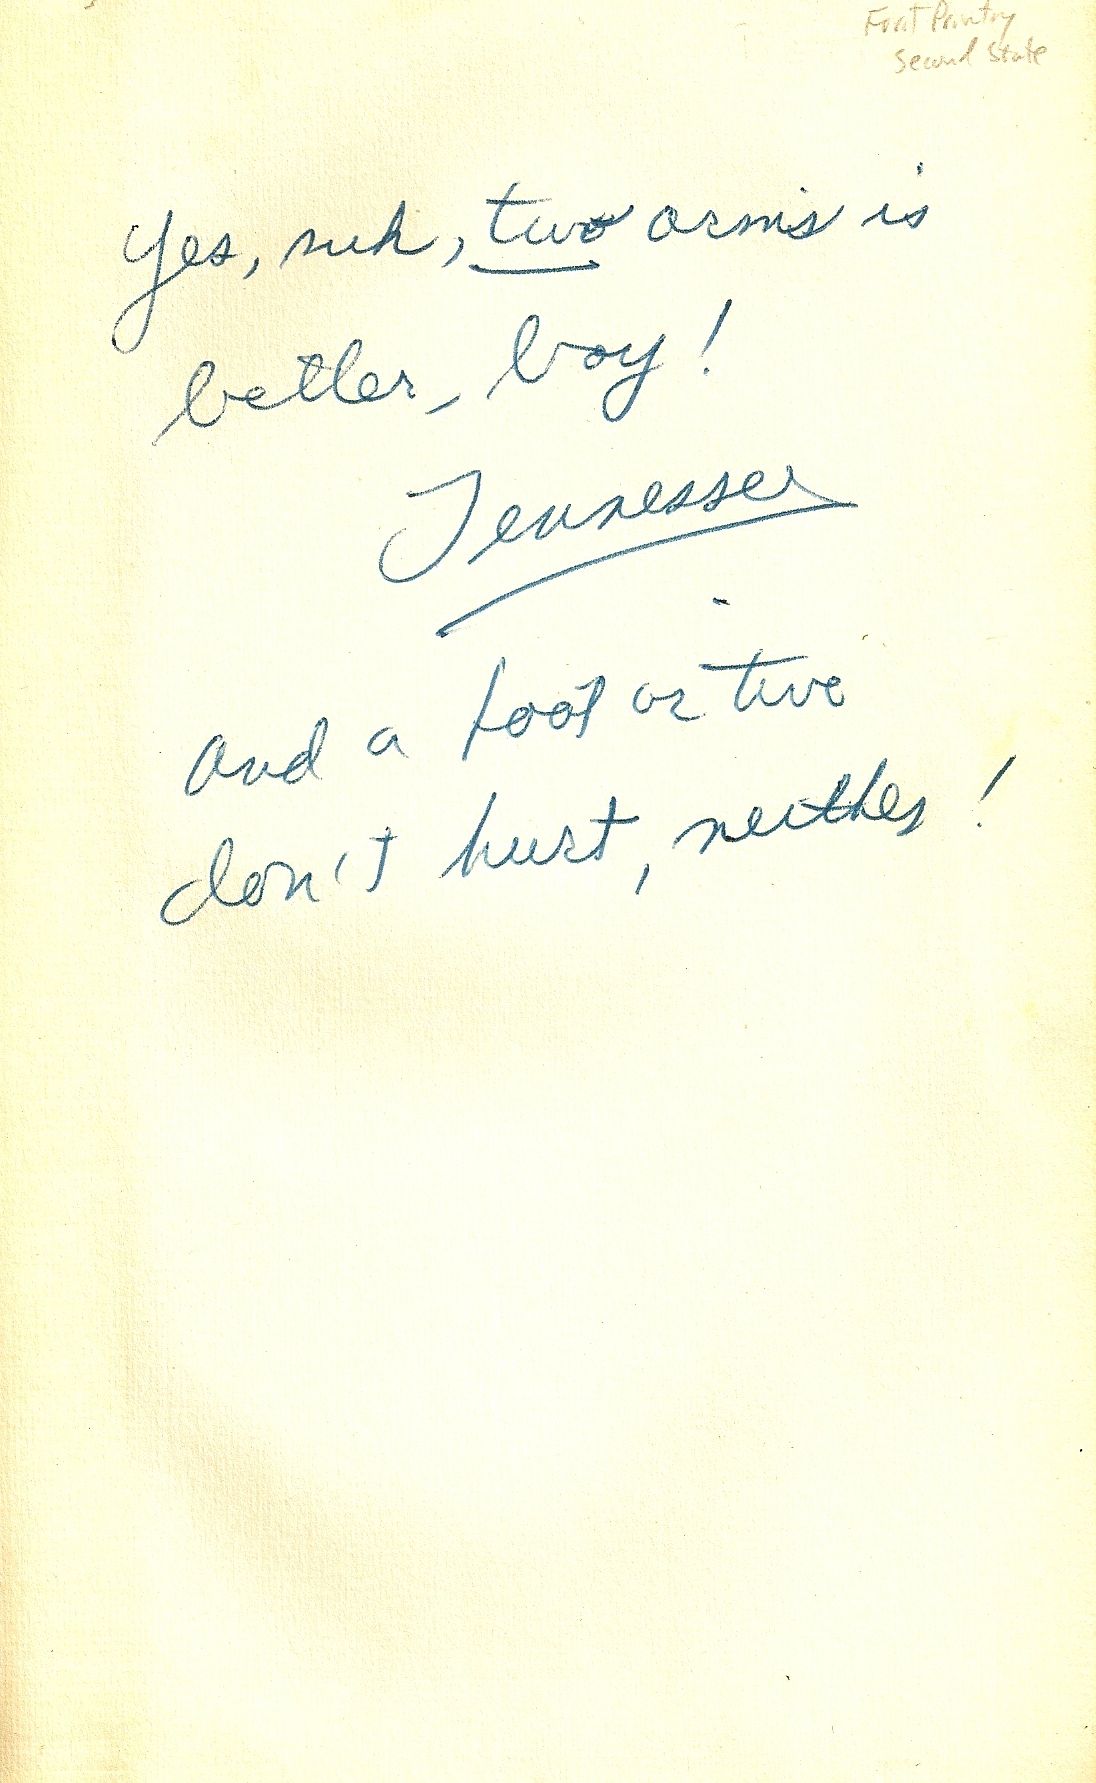 First Printing
Second State
Yes, suh, two arms is
better, boy!
Tennessee
and a foot or two
don't hurt, neither!